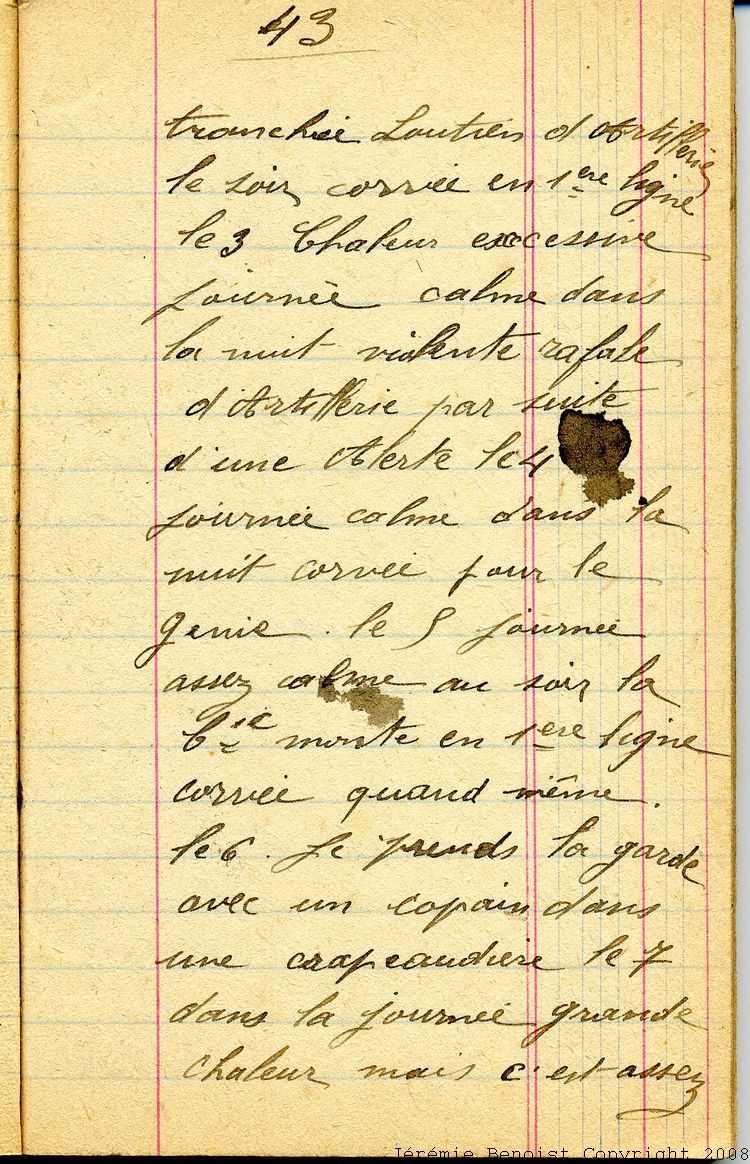 43
tranchée Soutien d'Artillerie
le soir corvée en 1ere ligne
le 3 Chaleur excessive
journée calme dans
la nuit violente rafale
d'Artillerie par suite
d'une Alerte le 4
journée calme dans la
nuit corvée pour le
genie. le 5 journée
assez calme au soir la
Cie monte en 1ere ligne
corvée quand même.
le 6. Je prends la garde
avec un copain dans
une crapeaudière le 7
dans la journée grande
chaleur mais c'est assez
Jérémie Benoist Copyright 2008